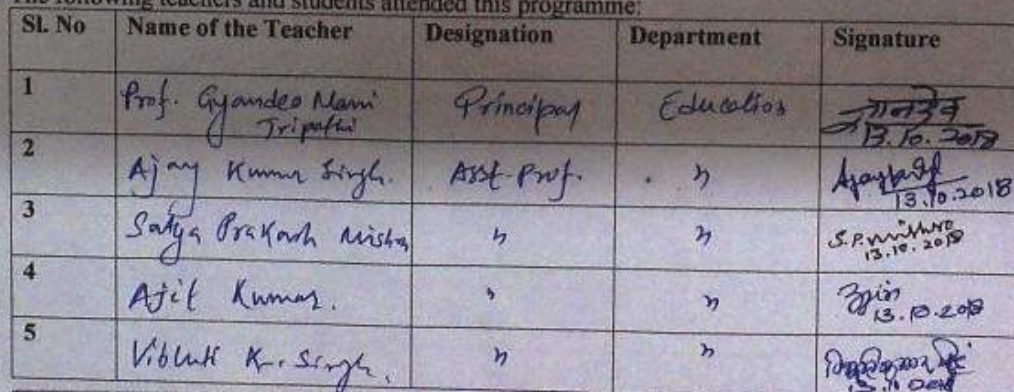 The following teachers and students attended this programme:
Sl. No Name of the Teacher Designation Department Signature
1 Prof. Gyandeo Mani Tripathi Principal Education ज्ञानदेव 13.10.2018
2 Ajay Kumar Singh. Asst-Prof. " 13.10.2018
3 Satya Prakash Mishra " " S.P. Mishra 13.10.2018
4 Ajit Kumar. " " 13.10.2018
5 Vibhuti Kr. Singh. " "